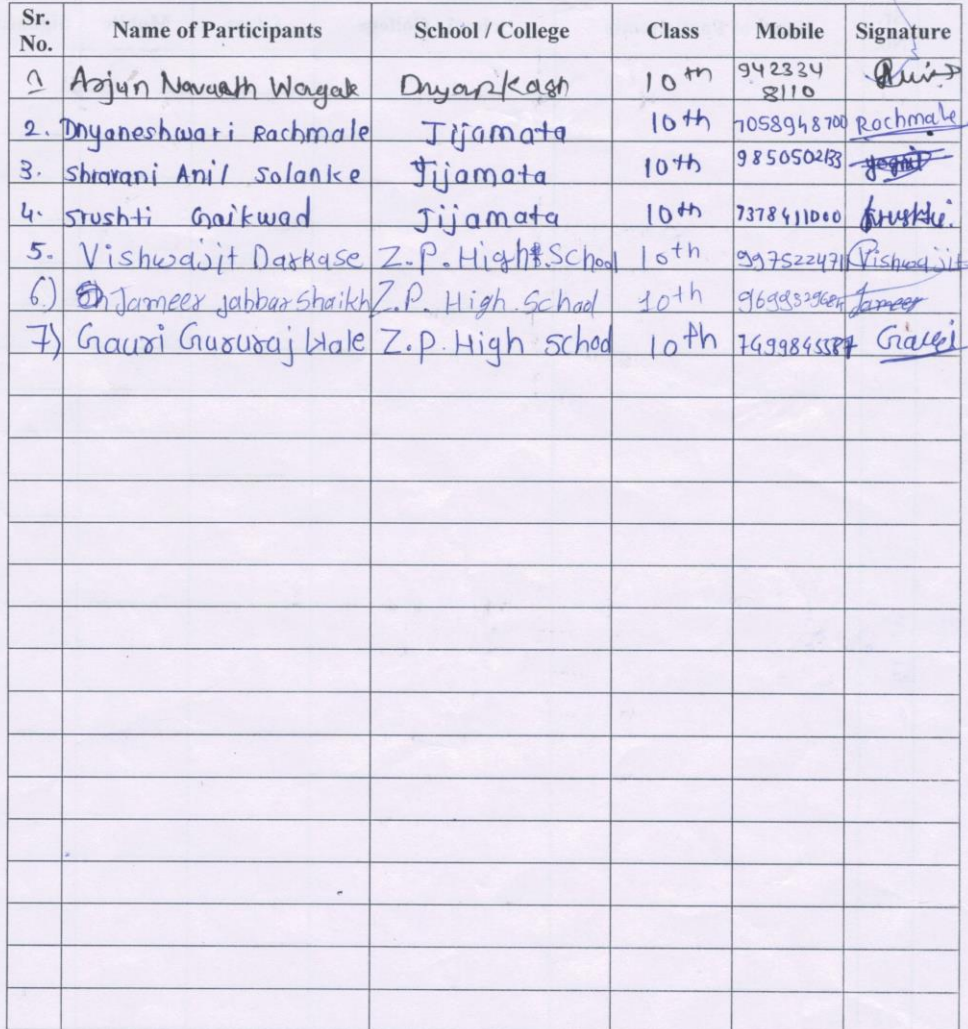 Sr. No. Name of Participants School / College Class Mobile Signature
1 Arjun Navnath Wagale Dnyan 10th 942334 8110
2. Dnyaneshwari Rachmale Jijamata 10th 7058948700 Rachmale
3. Shravani Anil Solanke Jijamata 10th 9850502133
4. Srushti Gaikwad Jijamata 10th 7378411000 Srushti.
5. Vishwajit Darkase Z.P. High School 10th 9975224711 Vishwajit
6.) Jameer jabbar Shaikh Z.P. High School 10th Jameer
7) Gauri Gururaj Hale Z.P. High School 10th Gauri